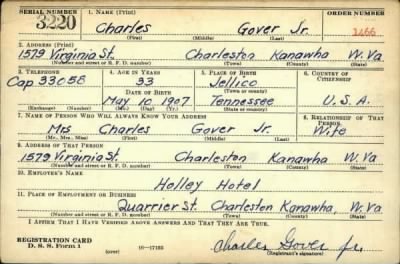 SERIAL NUMBER 1. NAME (Print) ORDER NUMBER
3220 Charles Gover Jr. 1466
(First) (Middle) (Last)
2. ADDRESS (Print)
1579 Virginia St. Charleston Kanawha W. Va
(Number and street or R. F. D. number) (Town) (County) (State)
3. TELEPHONE 4. AGE IN YEARS 5. PLACE OF BIRTH 6. COUNTRY OF CITIZENSHIP
Cap 33058 33 Jellico
DATE OF BIRTH (Town or county)
May 10, 1907 Tennessee U. S. A.
(Exchange) (Number) (Mo.) (Day) (Yr.) (State or country)
7. NAME OF PERSON WHO WILL ALWAYS KNOW YOUR ADDRESS 8. RELATIONSHIP OF THAT PERSON
Mrs Charles Gover Jr. Wife
(Mr., Mrs., Miss) (First) (Middle) (Last)
9. ADDRESS OF THAT PERSON
1579 Virginia St. Charleston Kanawha W. Va
(Number and street or R. F. D. number) (Town) (County) (State)
10. EMPLOYER'S NAME
Holley Hotel
11. PLACE OF EMPLOYMENT OR BUSINESS
Quarrier St. Charleston Kanawha, W. Va
(Number and street or R. F. D. number) (Town) (County) (State)
I AFFIRM THAT I HAVE VERIFIED ABOVE ANSWERS AND THAT THEY ARE TRUE.
REGISTRATION CARD
D. S. S. Form 1 (over) 16—17105 Charles Gover Jr.
(Registrant's signature)